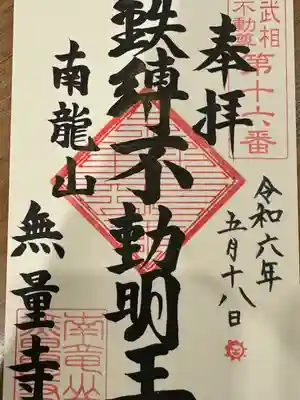 武相
不動尊
第十六番
奉拝
令和六年
五月十八日
鉄縛不動明王
南龍山
無量寺